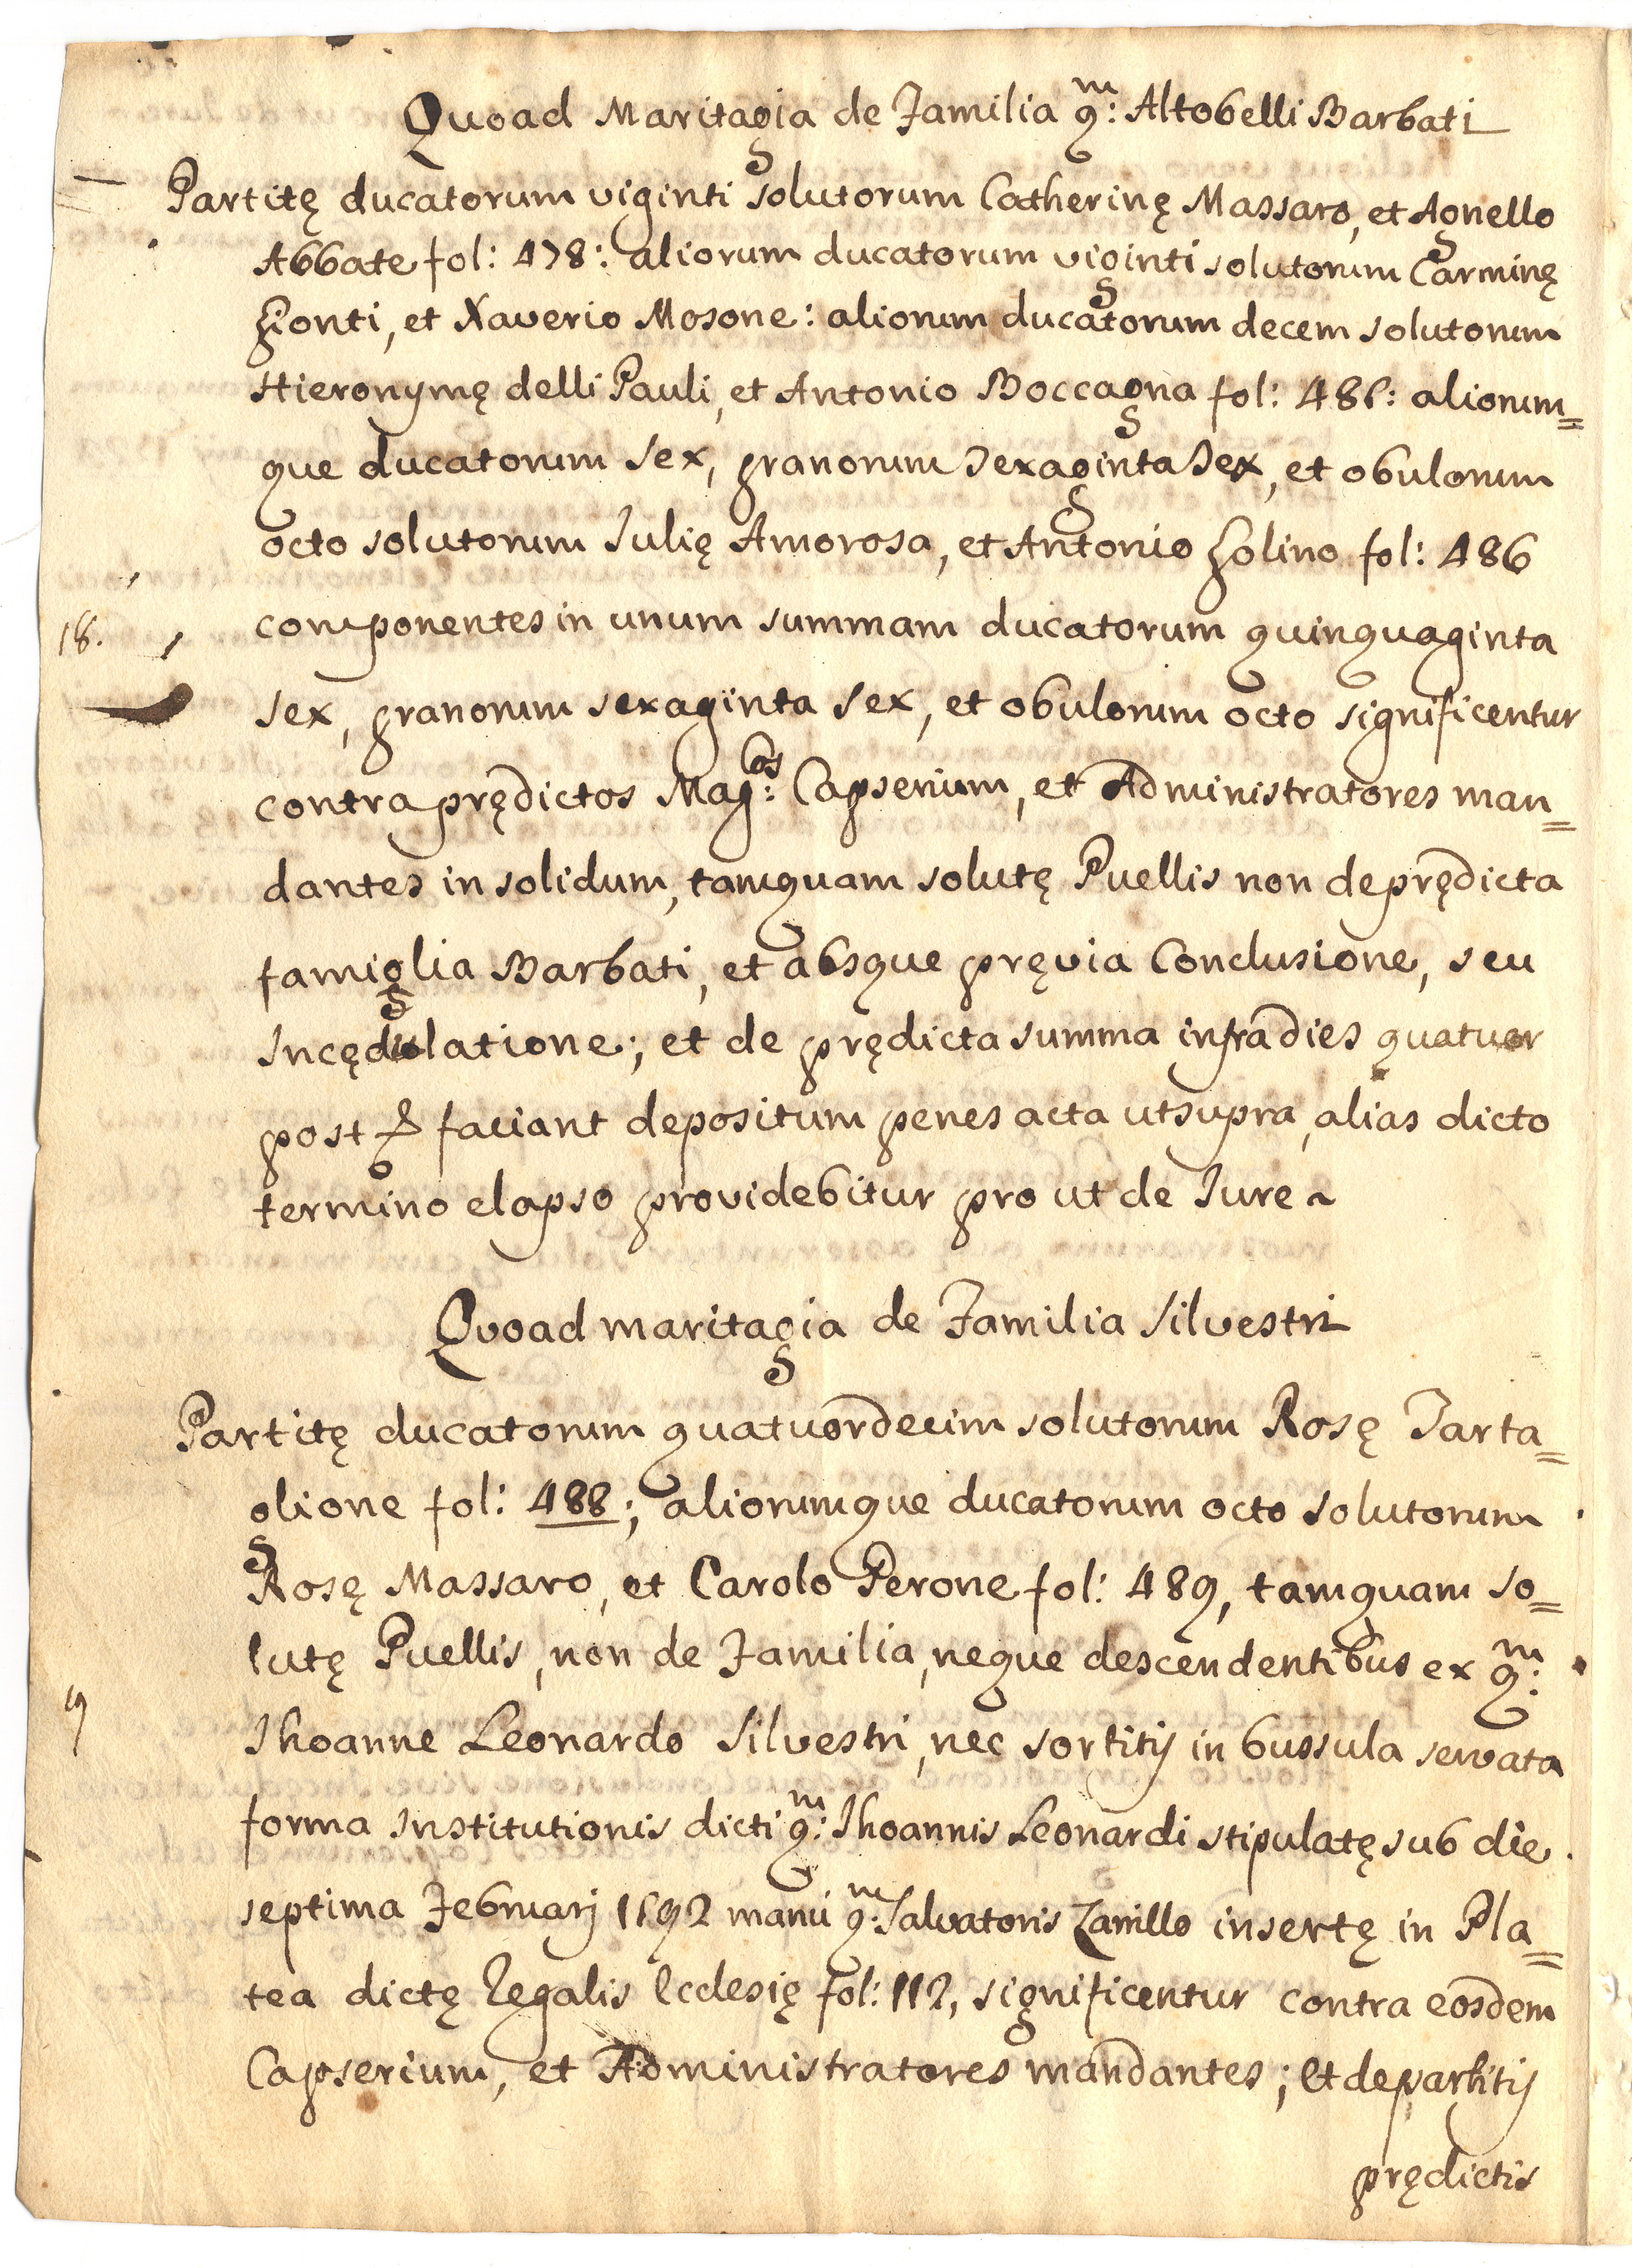 Quoad Maritagia de Familia qm: Altobelli Barbati
Partitę ducatorum viginti solutorum Catherinę Massaro, et Agnello
Abbate fol: 478: aliorum ducatorum viginti solutorum Carminę
Conti, et Xaverio Mosone: aliorum ducatorum decem solutorum
Hieronymę delli Pauli, et Antonio Boccagna fol: 481: aliorum=
que ducatorum sex, granorum sexaginta sex, et obulorum
octo solutorum Iulię Amorosa, et Antonio Golino fol: 486
componentes in unum summam ducatorum quinquaginta
18.
sex, granorum sexaginta sex, et obulorum octo significentur
contra prędictos Mag:cos Capserium, et Administratores man=
dantes in solidum, tamquam solutę Puellis non de prędicta
famiglia Barbati, et absque pręvia Conclusione, seu
Incędulatione; et de prędicta summa infra dies quatuor
post faciant depositum penes acta ut supra, alias dicto
termino elapso providebitur pro ut de Iure ~
Quoad maritagia de Familia Silvestri
Partitę ducatorum quatuordecim solutorum Rosę Tarta=
glione fol: 488; aliorumque ducatorum octo solutorum
Rosę Massaro, et Carolo Perone fol: 489, tamquam so=
lutę Puellis, non de Familia, neque descendentibus ex qm:
19
Ihoanne Leonardo Silvestri, nec sortitij in bussula servata
forma Institutionis dicti qm: Ihoannis Leonardi stipulatę sub die
septima Februarj 1592 manu qm: Salvatoris Zarrillo insertę in Pla=
tea dictę Regalis Ecclesię fol: 112, significentur contra eosdem
Capserium, et Administratores mandantes; et de partitij
prędictis